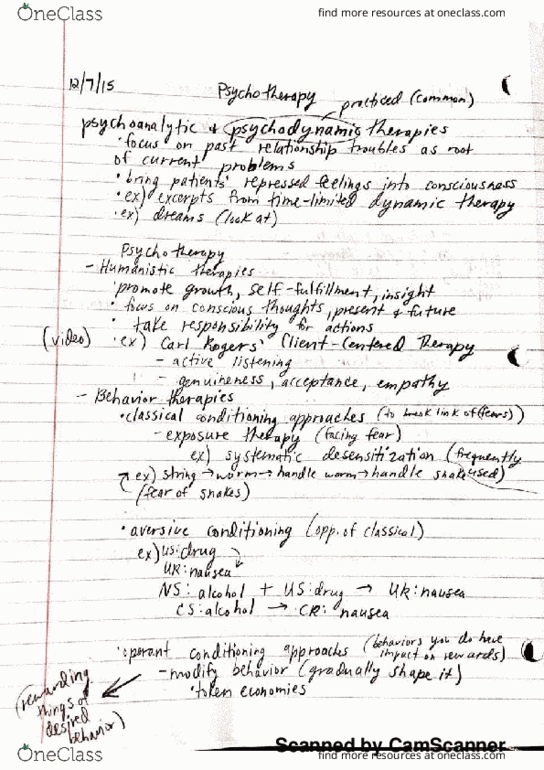 OneClass
find more resources at oneclass.com
12/7/15
Psychotherapy
practiced (common)
psychoanalytic & psychodynamic therapies
• focus on past relationship troubles as root
of current problems
• bring patients' repressed feelings into consciousness
• ex) excerpts from time-limited dynamic therapy
• ex) dreams (look at)
Psychotherapy
- Humanistic therapies
• promote growth, self-fulfillment, insight
• focus on conscious thoughts, present & future
• take responsibility for actions
(video) • ex) Carl Rogers' Client-Centered Therapy
- active listening
- genuineness, acceptance, empathy
- Behavior therapies
• classical conditioning approaches (to break link of fears)
- exposure therapy (facing fear)
ex) systematic desensitization (frequently
used)
ex) string → worm → handle worm → handle snake
(fear of snakes)
• aversive conditioning (opp. of classical)
ex) US: drug
UR: nausea
NS: alcohol + US: drug → UR: nausea
CS: alcohol → CR: nausea
• operant conditioning approaches (behaviors you do have
impact on rewards)
- modify behavior (gradually shape it)
• token economies
(rewarding
things of
desired
behavior)
Scanned by CamScanner
OneClass
find more resources at oneclass.com